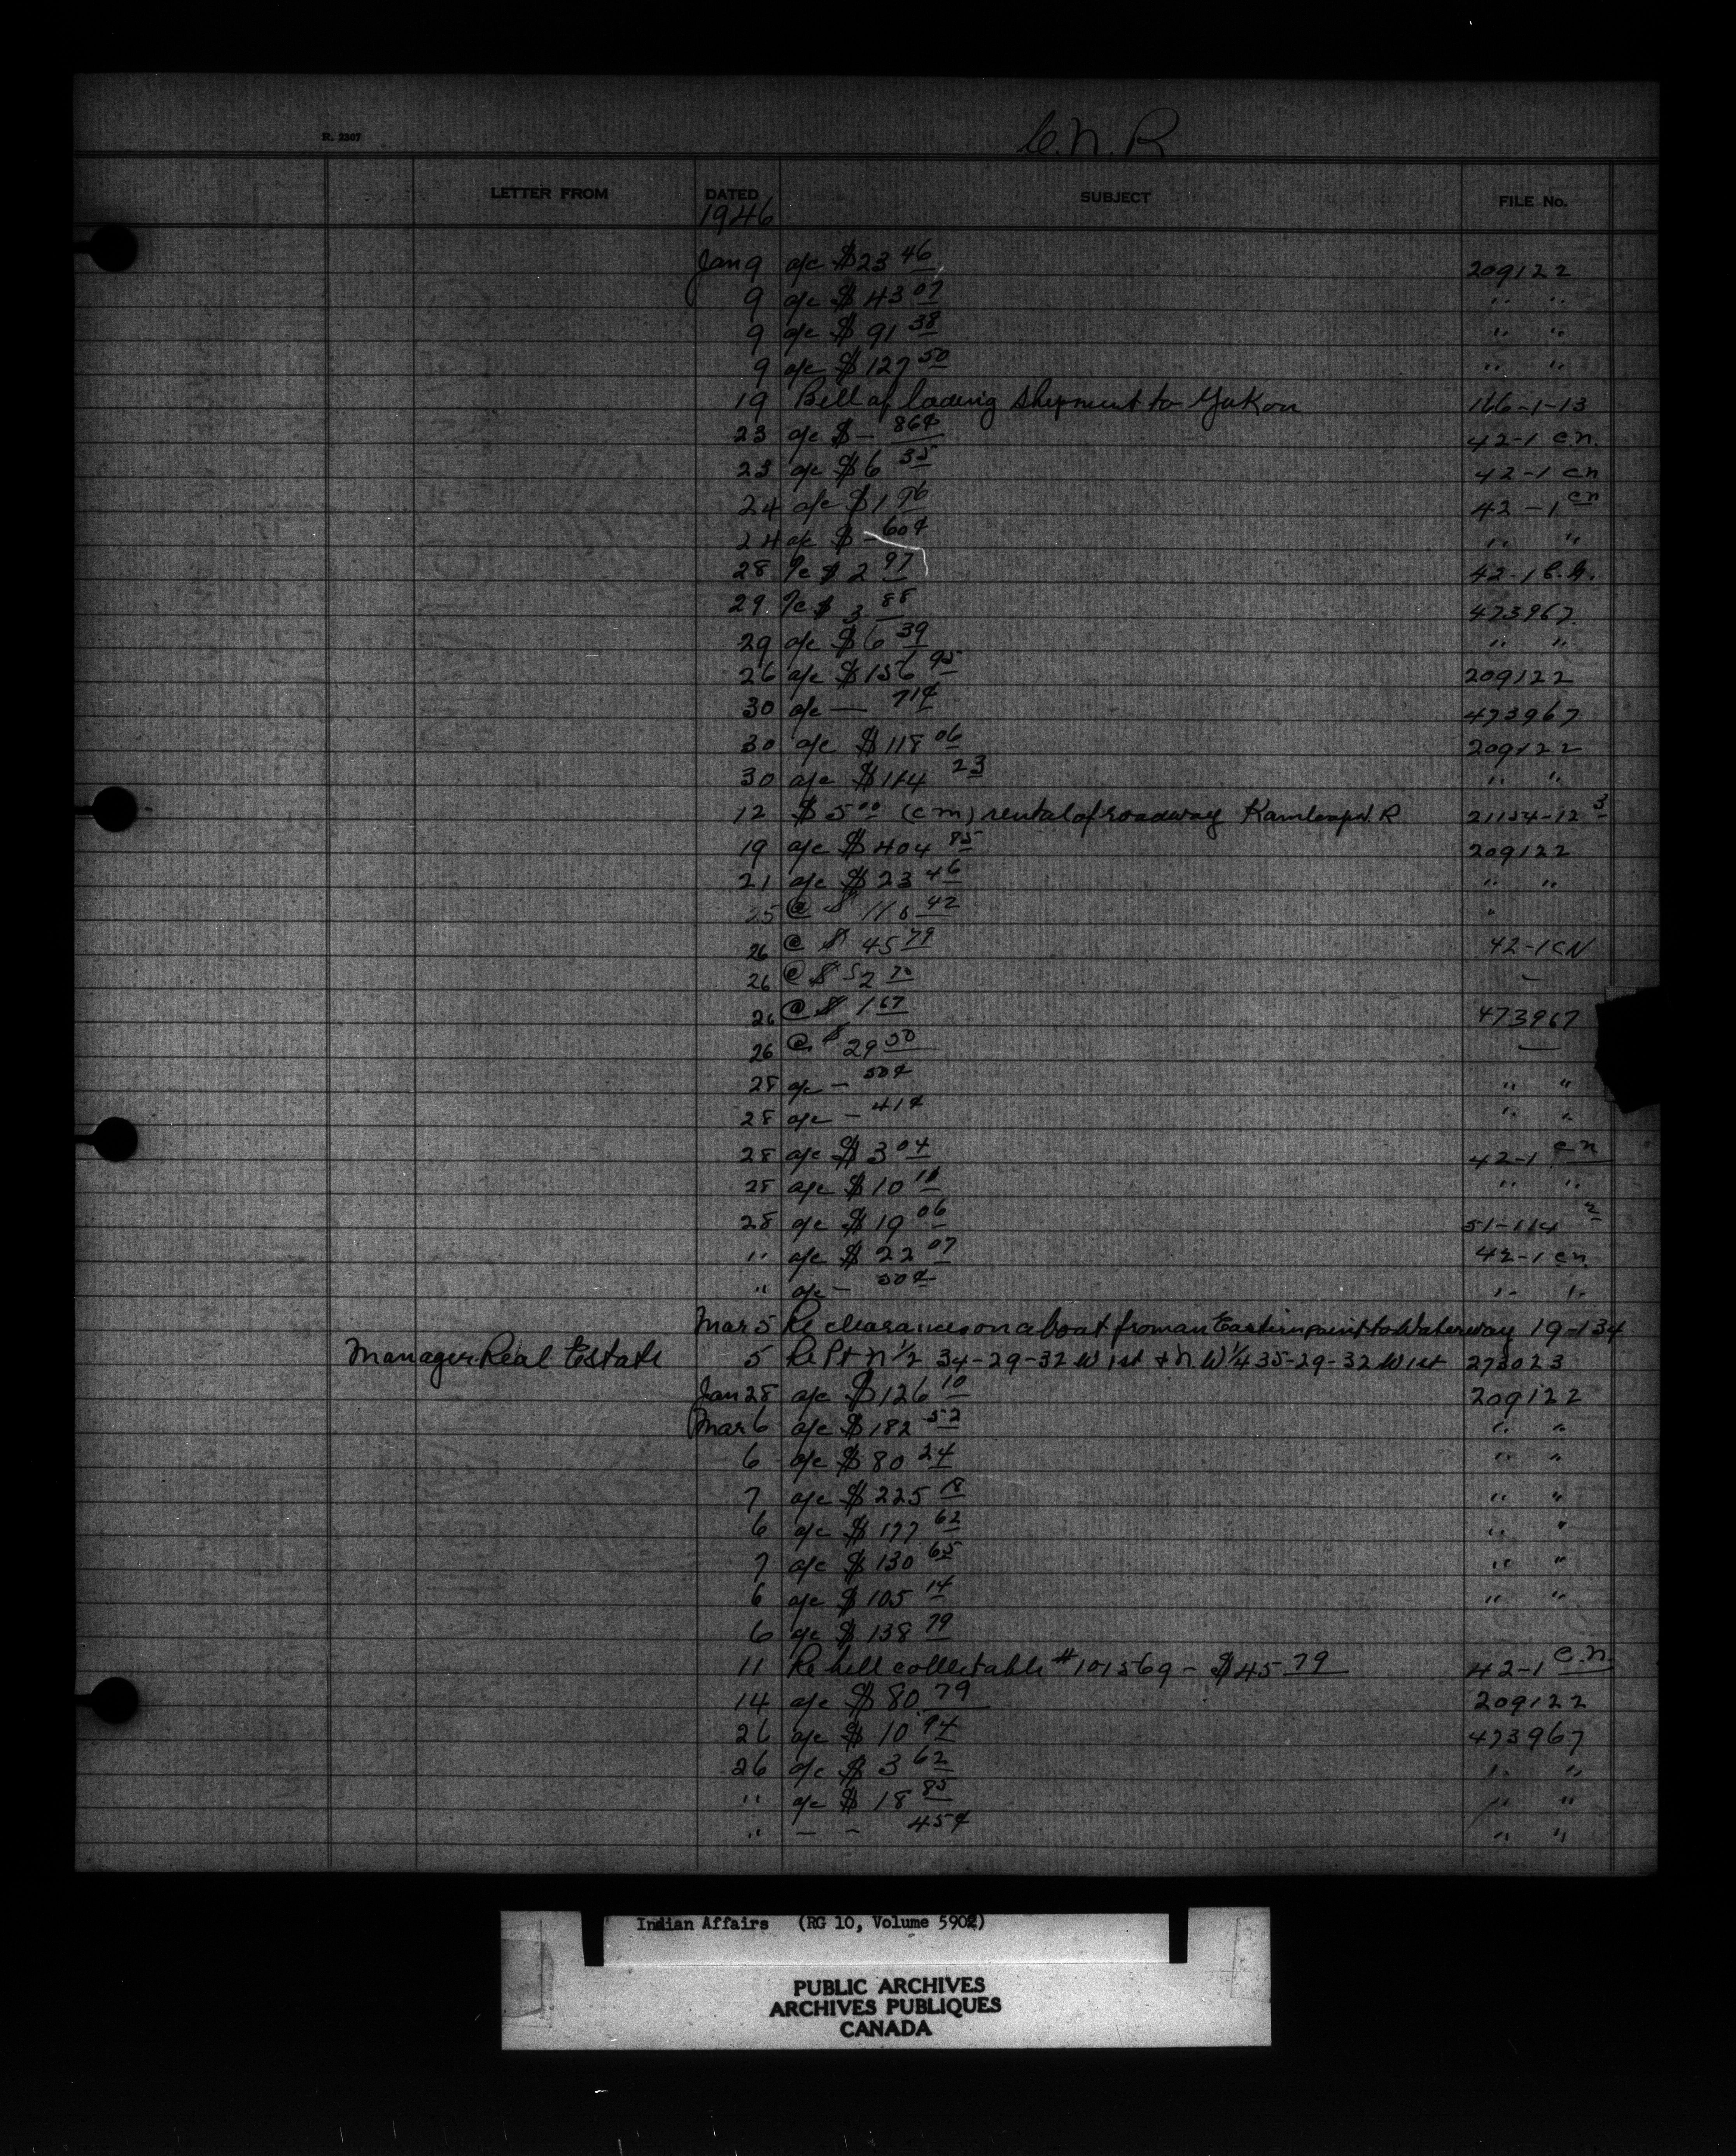 R. 2307
C. N. R
LETTER FROM DATED SUBJECT FILE No.
1946
Jan 9 a/c $23 46 209122
9 a/c $43 07 " "
9 a/c $91 38 " "
9 a/c $127 50 " "
19 Bill of lading shipment to Yukon 166-1-13
23 a/c $ - 86¢ 42-1 C.N.
23 a/c $6 35 42-1 CN
24 a/c $1 76 42-1 CN
24 a/c $ - 60¢ " "
28 a/c $2 97 42-1
29 a/c $3 88 473967
29 a/c $6 39 " "
26 a/c $156 95 209122
30 a/c — 71¢ 473967
30 a/c $118 06 209122
30 a/c $114 23 " "
12 $5 00 (cm) rental of roadway Kamloops I. R 21154-12 3
19 a/c $404 85 209122
21 a/c $23 46 " "
25 @ $ 42 "
26 @ $45 79 42-1 CN
26 @ $52 70
26 @ $1 67 473967
26 @ $29 50
28 a/c - 50¢ " "
28 a/c - 41¢ " "
28 a/c $3 04 42-1 CN
28 a/c $10 11 " "
28 a/c $19 06 51-114 2
" a/c $22 07 42-1 CN
" a/c - 50¢ " "
Mar 5 Re clearances on a boat from an Eastern point to Waterway 19-134
Manager Real Estate 5 Re Pt N 1/2 34-29-32 W 1st + N.W 1/4 35-29-32 W 1st 273023
Jan 28 a/c $126 10 209122
Mar 6 a/c $182 52 " "
6 a/c $80 24 " "
7 a/c $225 18 " "
6 a/c $177 62 " "
7 a/c $130 65 " "
6 a/c $105 14 " "
6 a/c $138 79
11 Re bill collectable #101569 - $45 79 42-1 C.N.
14 a/c $80 79 209122
26 a/c $10 94 473967
26 a/c $3 62 " "
" a/c $18 85 " "
" - - 45¢ " "
Indian Affairs (RG 10, Volume 5902)
PUBLIC ARCHIVES
ARCHIVES PUBLIQUES
CANADA